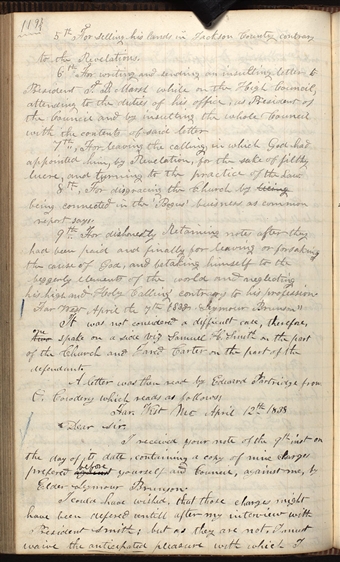 119
5th For selling his lands in Jackson County contrary
to the Revelations.
6th For writing and sending an insulting letter to
President T. B. Marsh while on the High Council,
attending to the duties of his office, as President of
the Council and by insulting the whole Council
with the contents of said letter
7th, For leaving the calling, in which God had
appointed him, by Revelation, for the sake of filthy
lucre, and turning to the practice of the Law
8th, For disgracing the Church by being
being connected in the 'Bogus' buisness as common
report says.
9th For dishonestly Retaining notes after they
had been paid and finally for leaving or forsaking
the cause of God, and betaking himself to the
beggerly elements of the world and neglecting
his high and Holy Calling contrary to his profession
Far West April the 7th 1838 Seymour Brunson"
It was not considered a difficult case, therefore,
spake on a side viz Samuel H. Smith on the part
of the Church and Jared Carter on the part of the
defendant.
A letter was then read by Edward Partridge from
O. Cowdery which reads as follows;
Far West Mo April 12th 1838
"Dear Sir
I received your note of the 9th inst on
the day of its date, containing a copy of nine charges
prefered before yourself and Council, against me, by
Elder Seymour Brunson.
I could have wished, that those charges might
have been defered untill after my interview with
President Smith; but as they are not, I must
waive the anticipated pleasure with which I